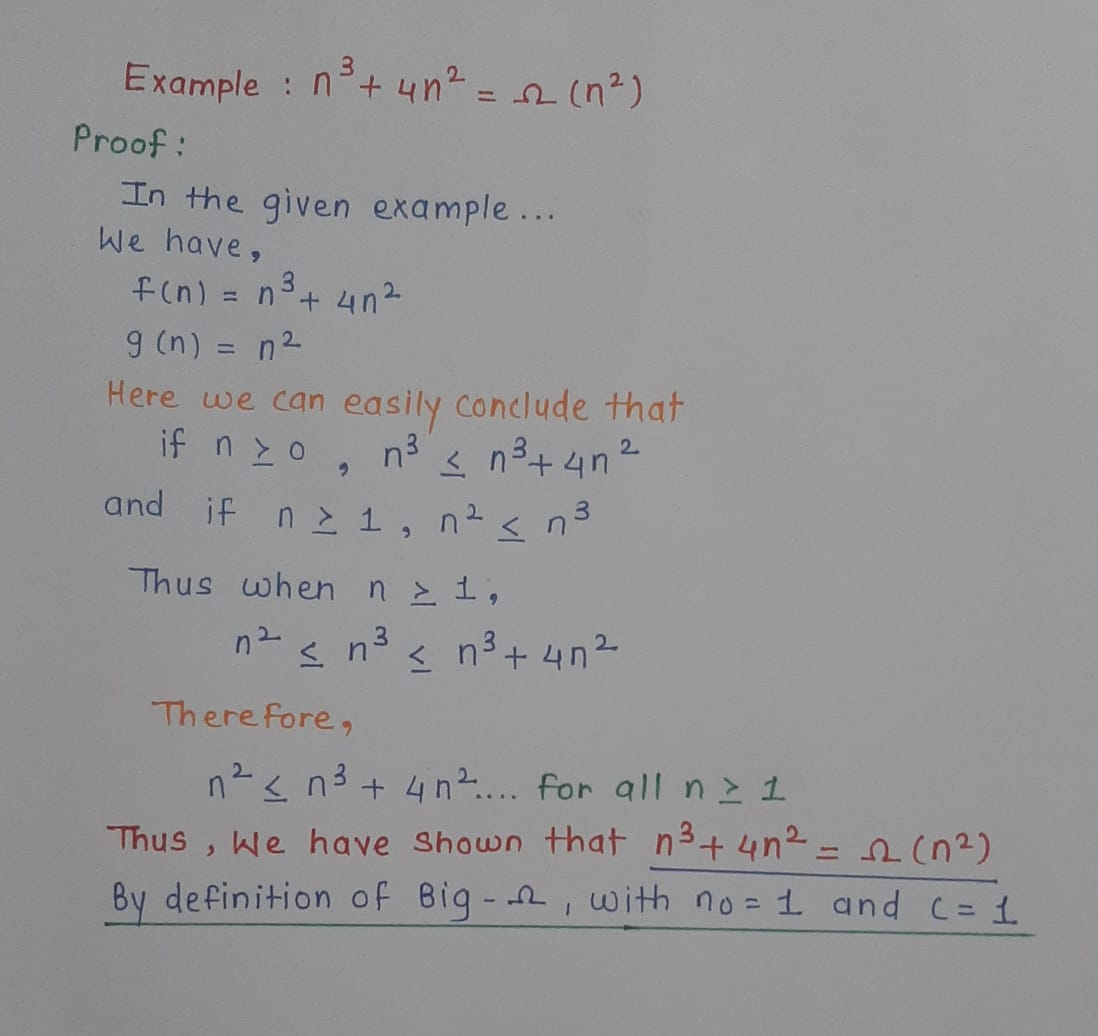 Example : n³ + 4n² = Ω (n²)
Proof :
In the given example ...
We have,
f(n) = n³ + 4n²
g (n) = n²
Here we can easily conclude that
if n ≥ 0 , n³ ≤ n³ + 4n²
and if n ≥ 1 , n² ≤ n³
Thus when n ≥ 1,
n² ≤ n³ ≤ n³ + 4n²
Therefore,
n² ≤ n³ + 4n² .... for all n ≥ 1
Thus , We have shown that n³ + 4n² = Ω (n²)
By definition of Big - Ω , with n0 = 1 and c = 1